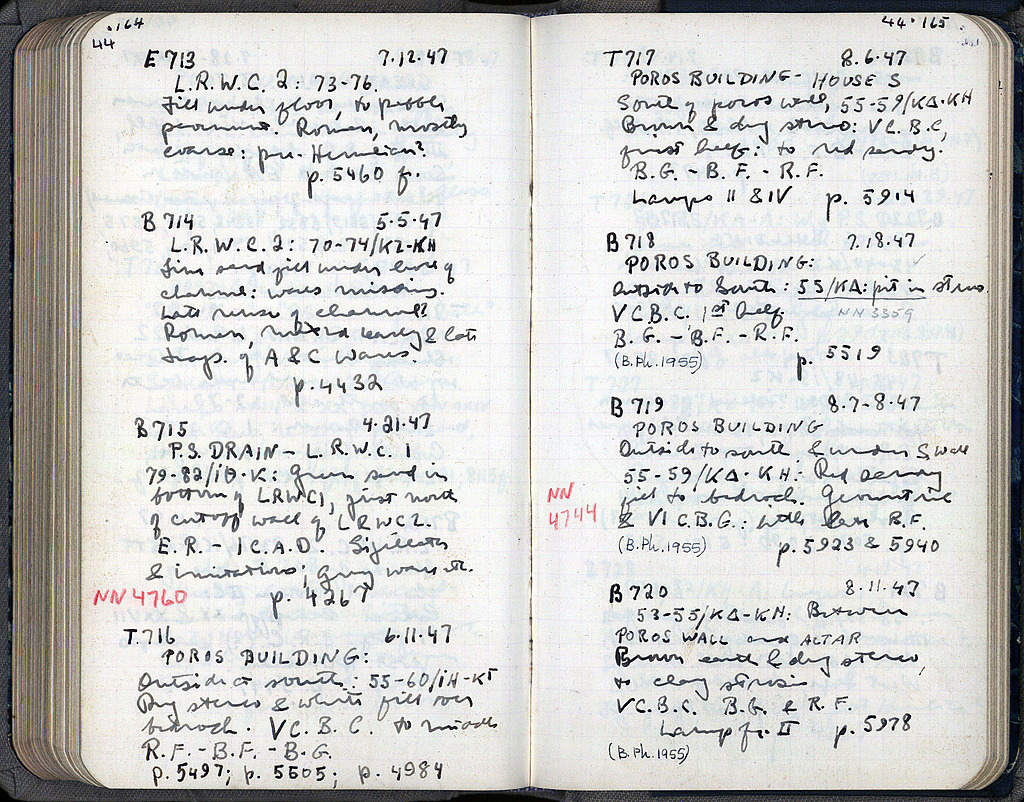 164
44
E 713 7.12.47
L.R.W.C. 2: 73-76.
Fill under floor, to pebble
pavement. Roman, mostly
coarse: pre-Herulian?
p. 5460 f.
B 714 5-5-47
L.R.W.C. 2: 70-74/KZ-KH
Fine sand fill under level of
channel: wares missing.
Late reuse of channel?
Roman, mixed early & late
scraps of A & C wares.
p. 4432
B 715 4-21-47
P.S. DRAIN - L.R.W.C. 1
79-82/ΙΘ-Κ: Grey sand in
bottom of LRWC1, just north
of cutoff wall of LRWC2.
E.R. - I C. A.D. Sigillata
& imitations; grey ware etc.
NN 4760 p. 4267
T 716 6.11.47
POROS BUILDING:
Outside to south: 55-60/ΙΗ-ΚΓ
Dry stereo & white fill over
bedrock. V C. B.C. to middle
R.F. - B.F. - B.G.
p. 5497; p. 5505; p. 4984
44 · 165
T 717 8.6.47
POROS BUILDING - HOUSE S
South of poros wall, 55-59/ΚΔ-ΚΗ
Brown & dry stereo: V C. B.C,
first half: to red sandy.
B.G. - B.F. - R.F.
Lamps II & IV p. 5914
B 718 7.18.47
POROS BUILDING:
Outside to South: 55/ΚΔ: pit in stereo.
V C B.C. 1st half. NN 3359
B.G. - B.F. - R.F.
(B.Ph. 1955) p. 5519
B 719 8.7-8.47
POROS BUILDING
Outside to south & under S wall
55-59/ΚΔ-ΚΗ: Red sandy
NN
4744
fill to bedrock. Geometric
& VI C. B.G.: little less R.F.
(B.Ph. 1955) p. 5923 & 5940
B 720 8.11.47
53-55/ΚΔ-ΚΗ: Between
POROS WALL and ALTAR
Brown earth & dry stereo,
to clay strosis
V C. B.C. B.G. & R.F.
Lamp fr. II p. 5978
(B.Ph. 1955)